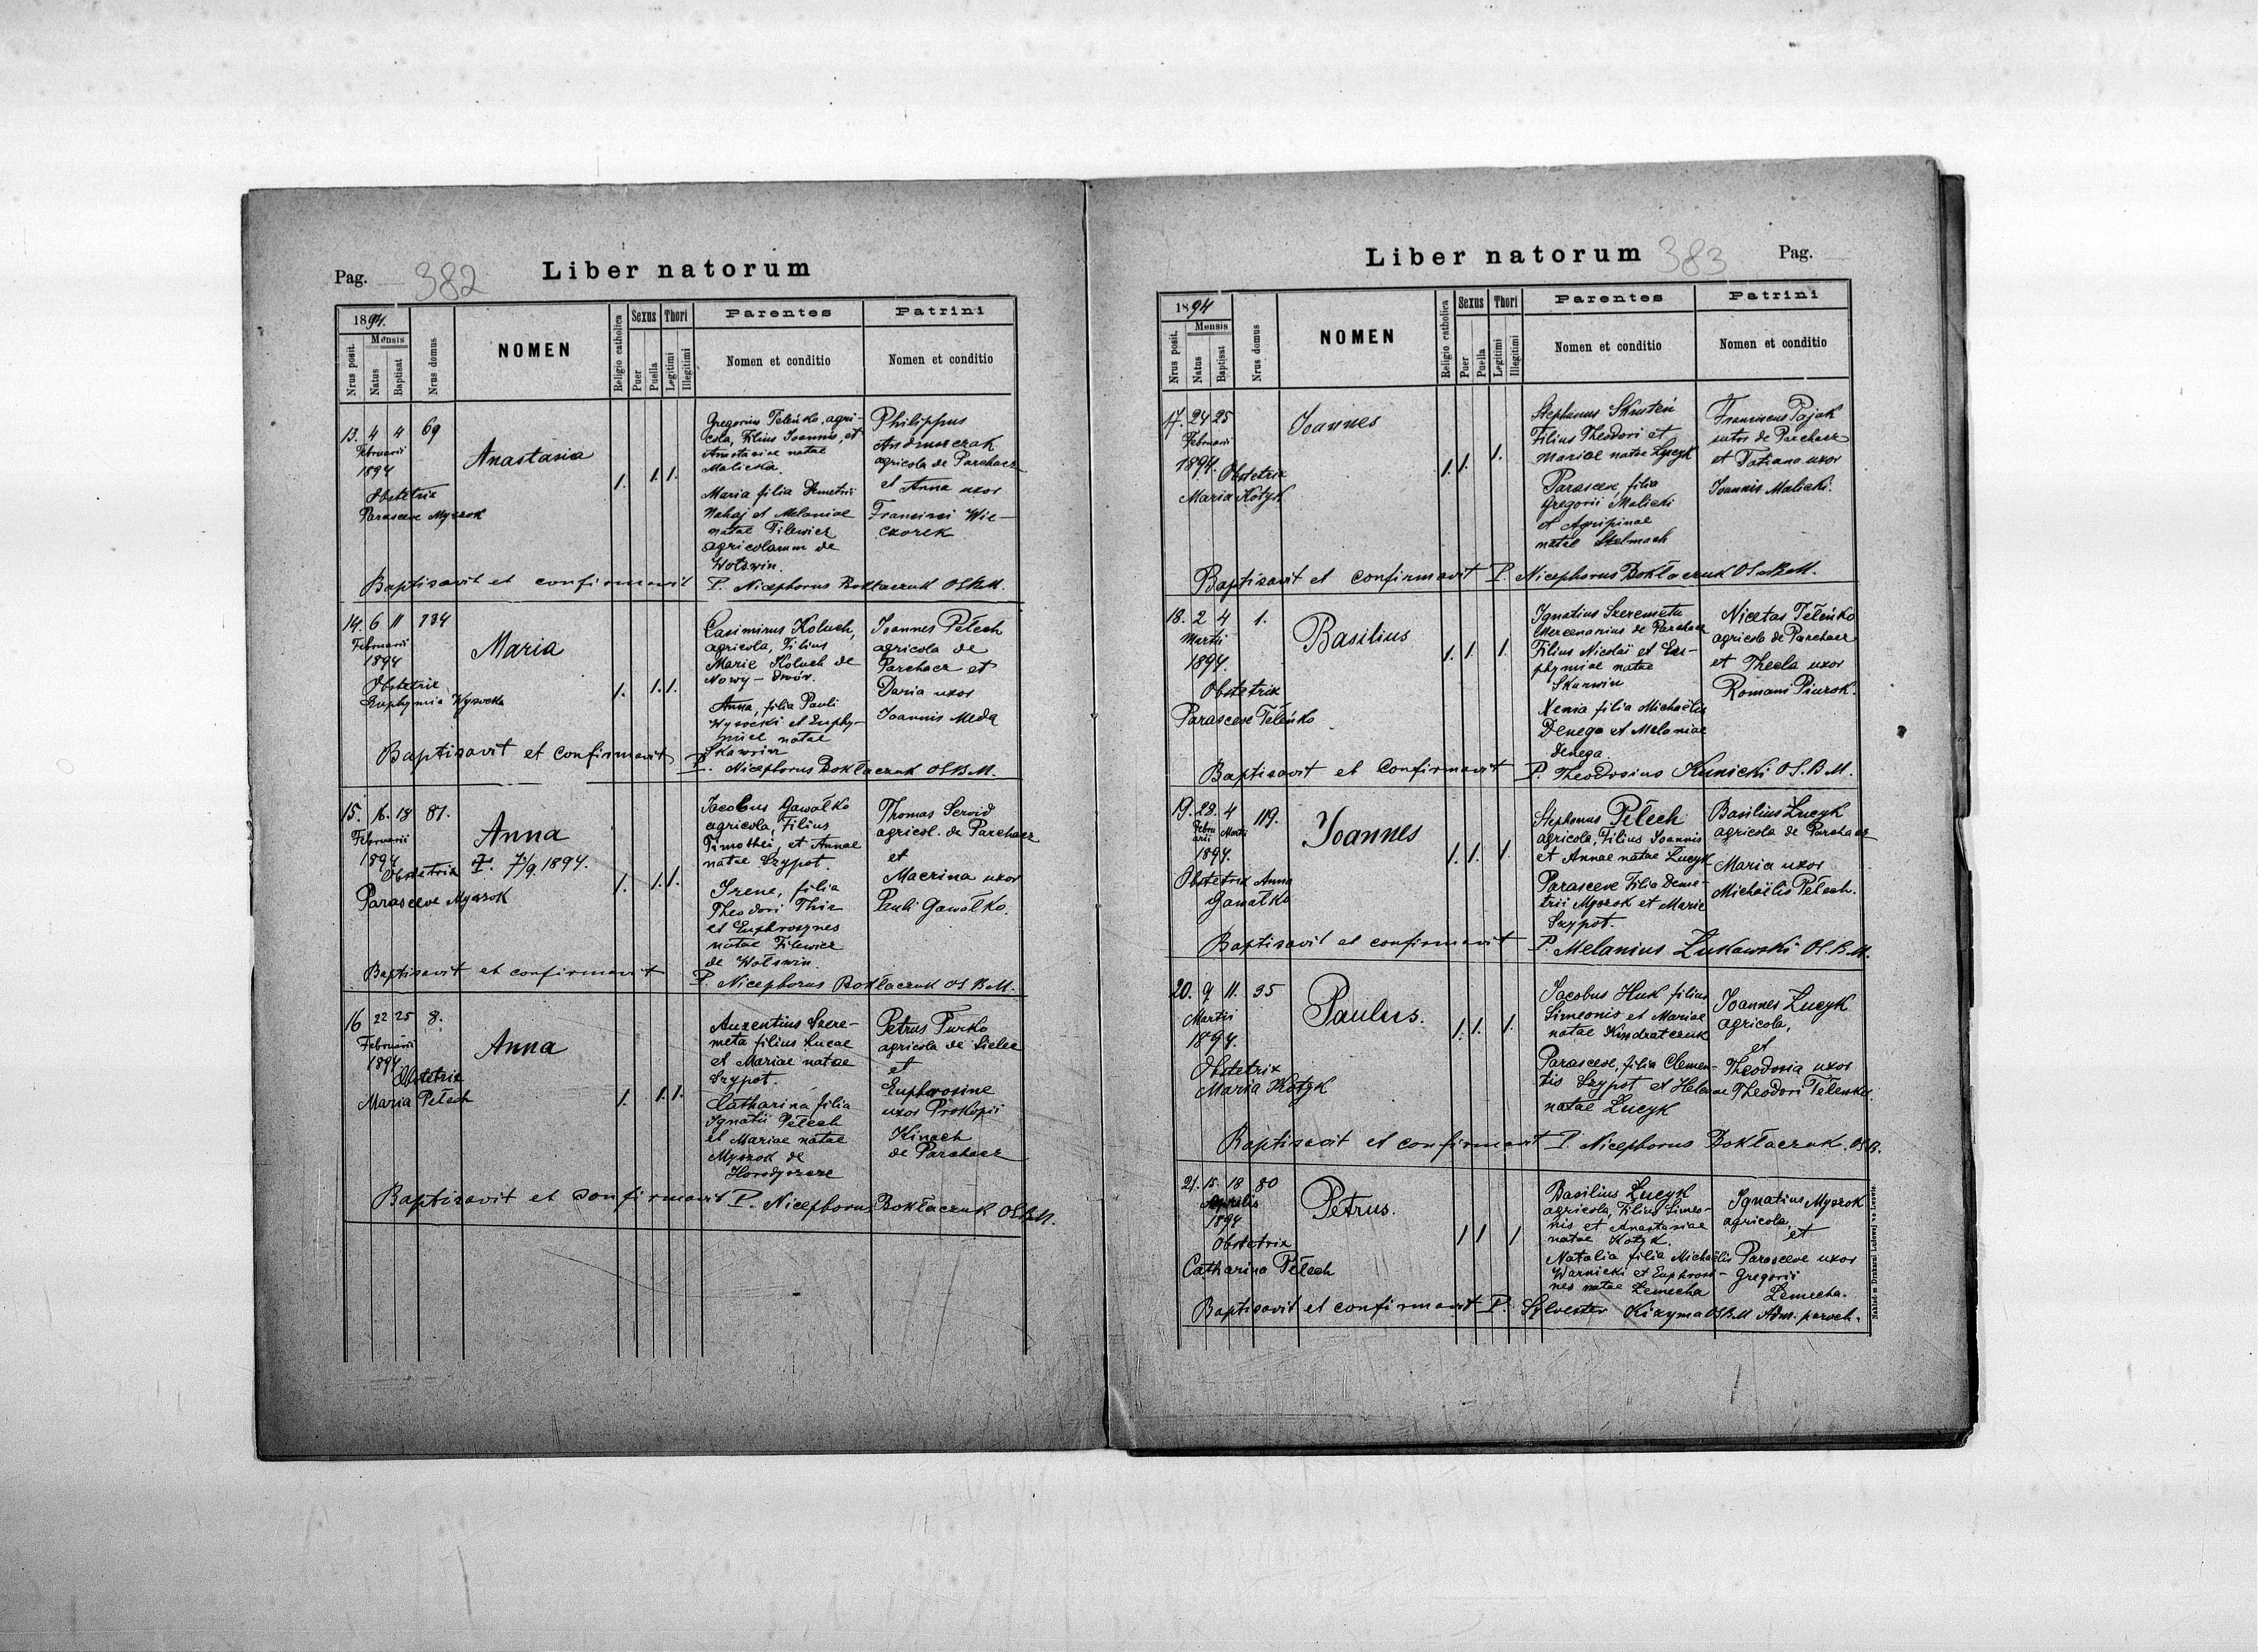 Pag. 382 Liber natorum
1894.
Nrus posit.
Mensis
Natus
Baptisat
Nrus domus
NOMEN
Religio catholica
Sexus
Puer
Puella
Thori
Legitimi
Illegitimi
Parentes
Nomen et conditio
Patrini
Nomen et conditio
13. 4 4 69
Februarii
1894
Obstetrix
Parasceve Myszok
Anastasia
1. 1. 1.
Gregorius Teleńko, agri-
cola, Filius Joannis, et
Anastasiae natae
Malicka.
Maria filia Demetrii
Nahaj et Melaniae
natae Filewicz
agricolarum de
Wolswin.
Philippus
Andruszczak
agricola de Parchacz
et Anna uxor
Francisci Wie-
czorek
Baptisavit et confirmavit P. Nicephorus Boktaczuk OSBM.
14. 6 11 134
Februarii
1894
Obstetrix
Euphymia Wysocka
Maria
1. 1. 1.
Casimirus Koluch,
agricola, Filius
Marie Koluch de
Nowy-dwór.
Anna, filia Pauli
Wysocki et Euphy-
miae natae
Skawrin
Joannes Pełech
agricola de
Parchacz et
Daria uxor
Joannis Meda
Baptisavit et confirmavit P. Nicephorus Boktaczuk OSBM.
15. 16. 18 81.
Februarii
1894
Obstetrix
Parasceve Myszok
Anna
7/9 1894.
1. 1. 1.
Jacobus Gawałko
agricola, Filius
Timothei, et Annae
natae Szypot.
Irene, filia
Theodori Thir
et Euphrosynes
natae Filewicz
de Wolswin.
Thomas Seroid
agricol. de Parchacz
et
Macrina uxor
Pauli Gawałko.
Baptisavit et confirmavit P. Nicephorus Boktaczuk OSBM.
16 22 25 8.
Februarii
1894
Obstetrix
Maria Pełech
Anna
1. 1. 1.
Auxentius Szere-
meta filius Lucae
et Mariae natae
Szypot.
Catharina filia
Ignatii Pełech
et Mariae natae
Myszok de
Horodyszcze
Petrus Turko
agricola de Sielec
et
Euphrosine
uxor Prokopii
Kinach
de Parchacz
Baptisavit et confirmavit P. Nicephorus Boktaczuk OSBM.
Liber natorum 383 Pag.
1894
Nrus posit.
Mensis
Natus
Baptisat
Nrus domus
NOMEN
Religio catholica
Sexus
Puer
Puella
Thori
Legitimi
Illegitimi
Parentes
Nomen et conditio
Patrini
Nomen et conditio
17. 24 25
Februarii
1894. Obstetrix
Maria Kotyk
Joannes
1. 1. 1.
Stephanus
Filius Theodori et
Mariae natae Łucyk
Parasceve, filia
Gregorii Malicki
et Agripinae
natae Stelmach
Franciscus Pajak
sutor de Parchacz
et Tatiana uxor
Joannis Malicki.
Baptisavit et confirmavit P. Nicephorus Boktaczuk OSBM.
18. 2 4 1.
Martii
1894.
Obstetrix
Parasceve Teleńko
Basilius
1. 1. 1.
Ignatius Szeremeta
Mercenarius de Parchacz
Filius Nicolai et Eu-
phymiae natae
Skarwin
Xenia filia Michaëlis
Denega et Melaniae
Denega
Nicetas Teleńko
agricola de Parchacz
et Thecla uxor
Romani Piurok.
Baptisavit et Confirmavit P. Theodosius Kunicki O.S.B.M.
19. 28. 4 119.
Febru Martii
arii
1894.
Obstetrix Anna
Gawałko
Joannes
1. 1. 1.
Stephanus Pełech
agricola, Filius Joannis
et Annae natae Łucyk
Parasceve Filia Deme-
trii Myszok et Marie
Szypot.
Basilius Łucyk
agricola de Parchacz
Maria uxor
Michaëlis Pełech.
Baptisavit et confirmavit P. Melanius Łukawski O.S.B.M.
20. 9 11. 35
Martii
1894.
Obstetrix
Maria Kotyk
Paulus.
1. 1. 1.
Jacobus Huk filius
Simeonis et Mariae
natae Kindratczuk
Parasceve, filia Clemen-
tis Szypot et Helenae
natae Łucyk
Joannes Łucyk
agricola,
et
Theodosia uxor
Theodori
Baptisavit et confirmavit P. Nicephorus Boktaczuk. OSB.
21. 15. 18 80
Aprilis
1894
Obstetrix
Catharina Pełech
Petrus.
1 1 1
Basilius Łucyk
agricola, Filius Simeo-
nis et Anastasiae
natae Kotyk.
Natalia filia Michaëlis
Warnicki et Euphrosi-
nes natae Łemecha
Ignatius Myszok
agricola,
et
Parasceve uxor
Gregorii
Łemecha.
Baptisavit et confirmavit P. Sylvester Kizyma OSBM Adm. paroch.
Nakładem Drukarni Ludowej we Lwowie.